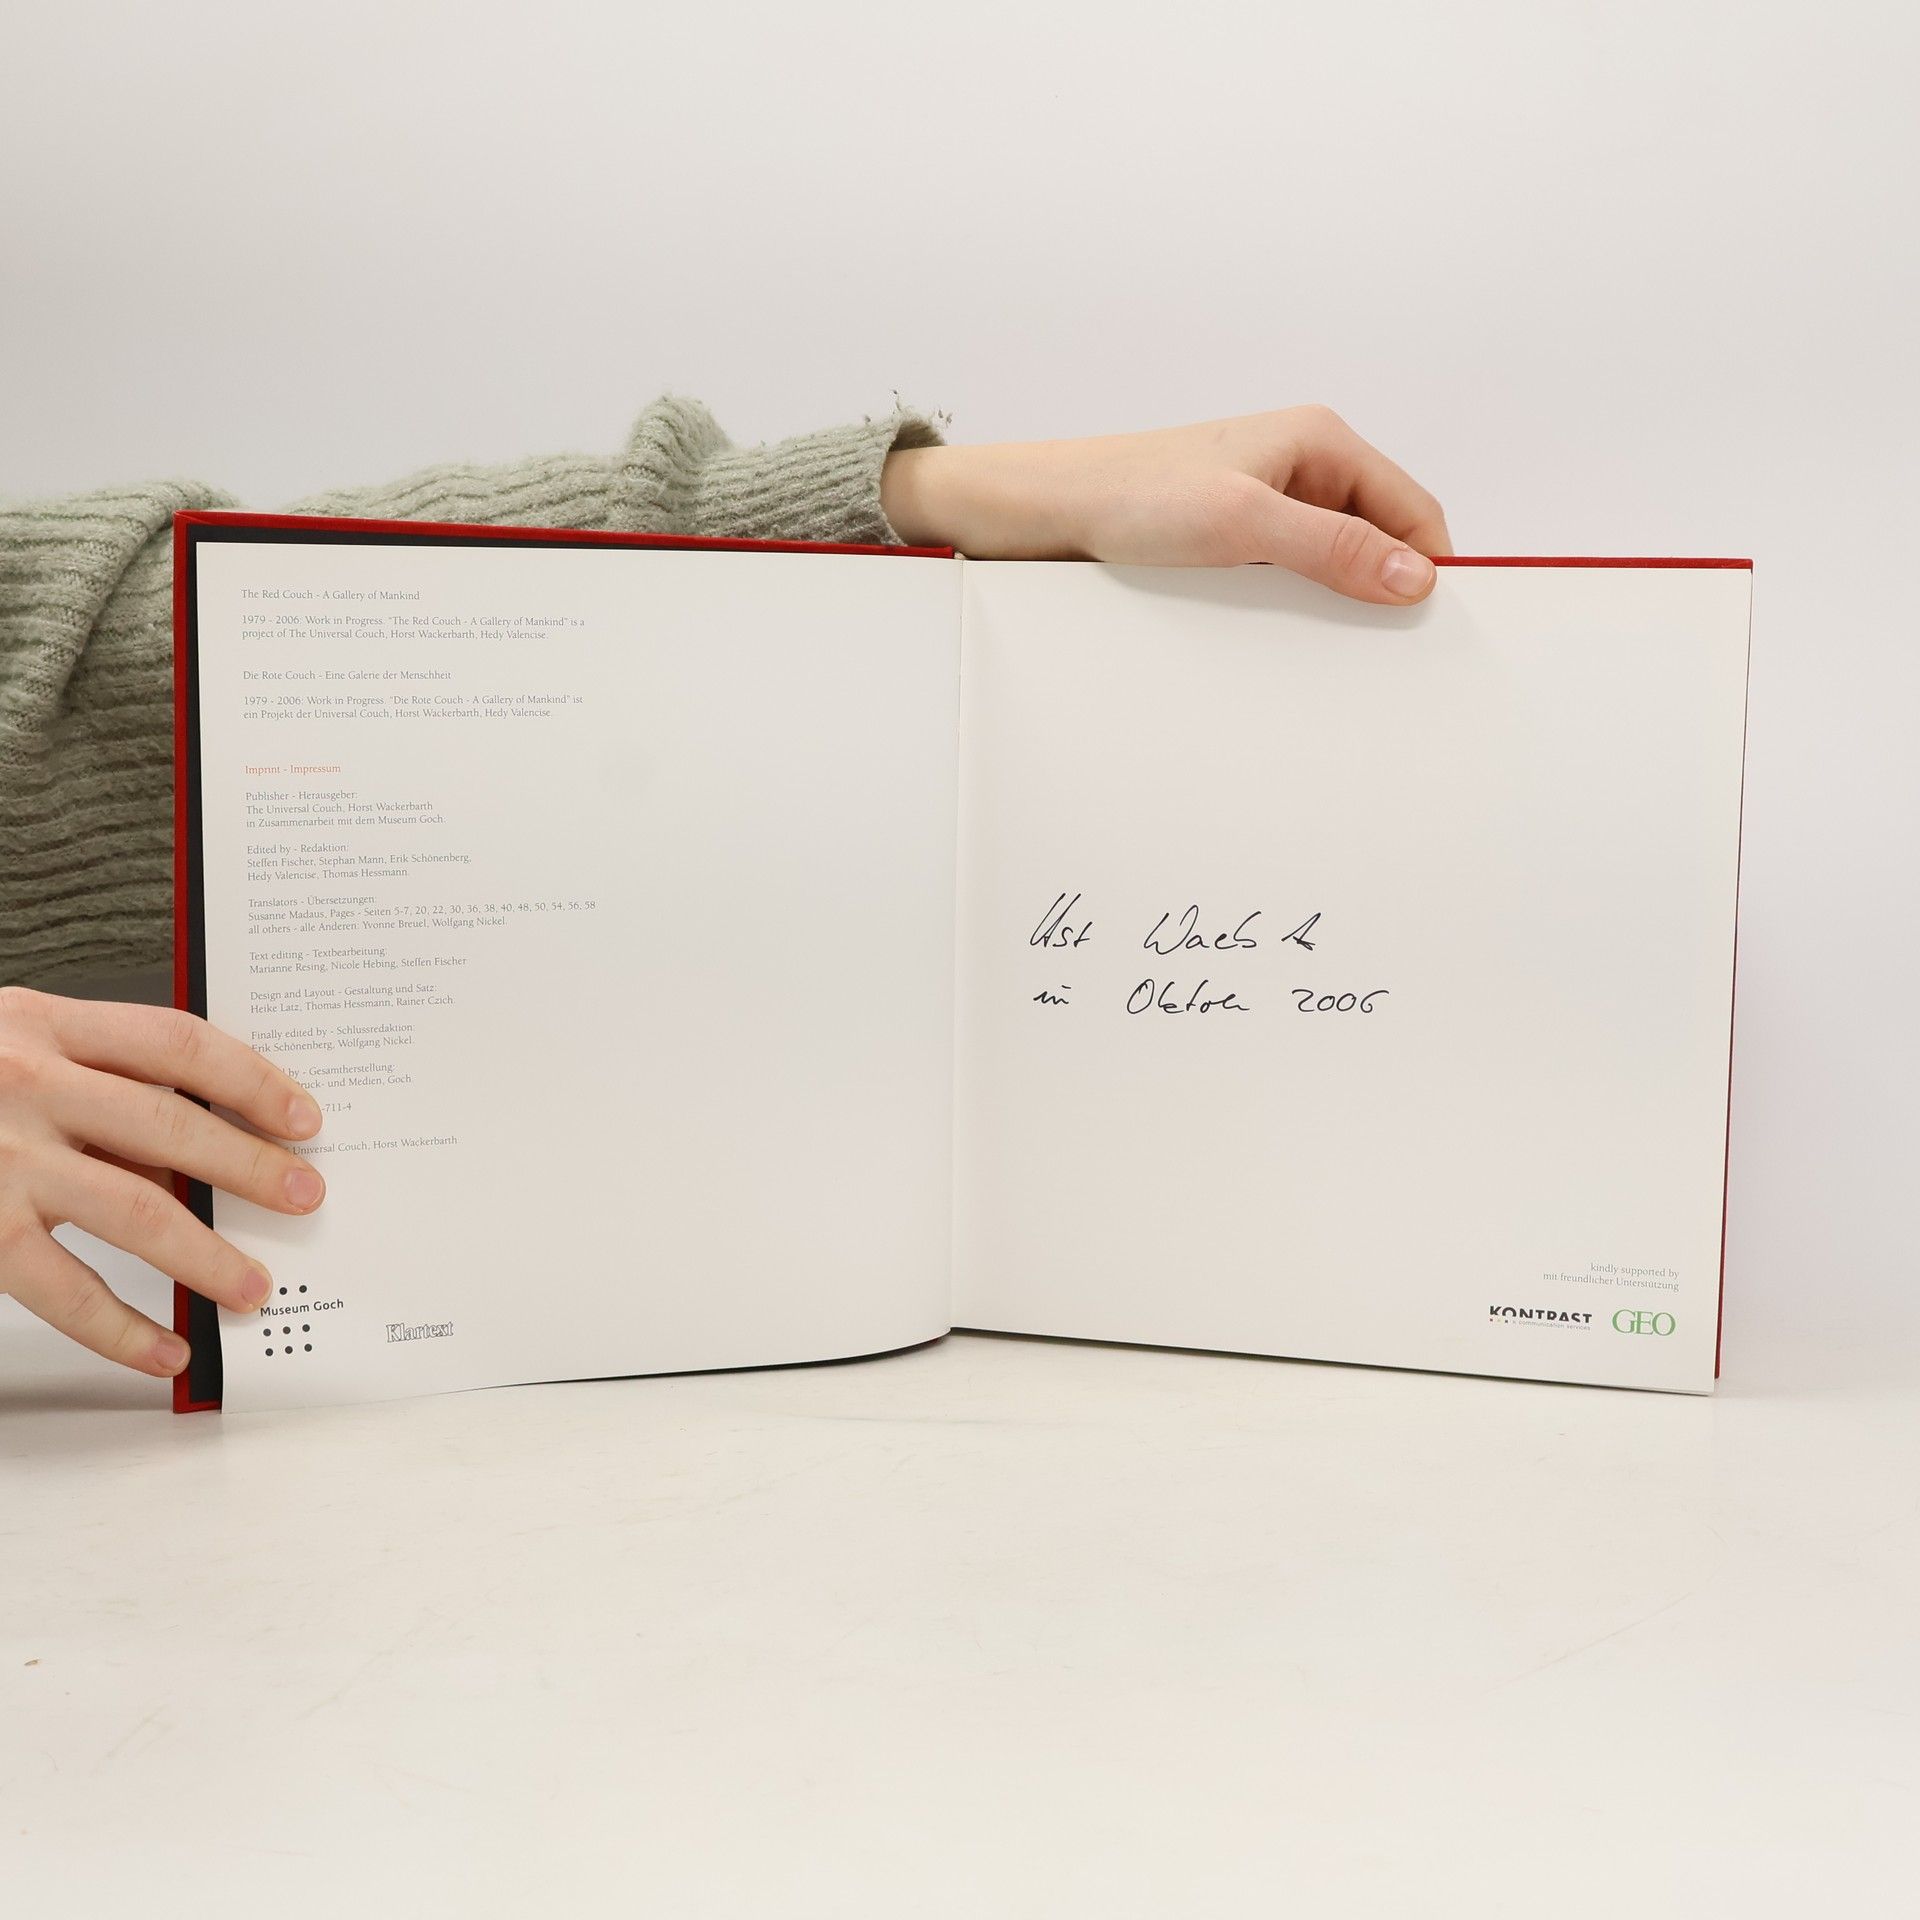 The Red Couch - A Gallery of Mankind
1979 - 2006: Work in Progress. "The Red Couch - A Gallery of Mankind" is a
project of The Universal Couch, Horst Wackerbarth, Hedy Valencise.
Die Rote Couch - Eine Galerie der Menschheit
1979 - 2006: Work in Progress. "Die Rote Couch - A Gallery of Mankind" ist
ein Projekt der Universal Couch, Horst Wackerbarth, Hedy Valencise.
Imprint - Impressum
Publisher - Herausgeber:
The Universal Couch, Horst Wackerbarth
in Zusammenarbeit mit dem Museum Goch.
Edited by - Redaktion:
Steffen Fischer, Stephan Mann, Erik Schönenberg,
Hedy Valencise, Thomas Hessmann.
Translators - Übersetzungen:
Susanne Madaus, Pages - Seiten 5-7, 20, 22, 30, 36, 38, 40, 48, 50, 54, 56, 58
all others - alle Anderen: Yvonne Breuel, Wolfgang Nickel.
Text editing - Textbearbeitung:
Marianne Resing, Nicole Hebing, Steffen Fischer
Design and Layout - Gestaltung und Satz:
Heike Latz, Thomas Hessmann, Rainer Czich
Finally edited by - Schlussredaktion
Erik Schönenberg, Wolfgang Nickel.
by - Gesamtherstellung:
und Medien, Goch
-711-4
Universal Couch, Horst Wackerbarth
Museum Goch
Klartext
in Oktober 2006
kindly supported by
mit freundlicher Unterstützung
KONTRAST GEO
communication services